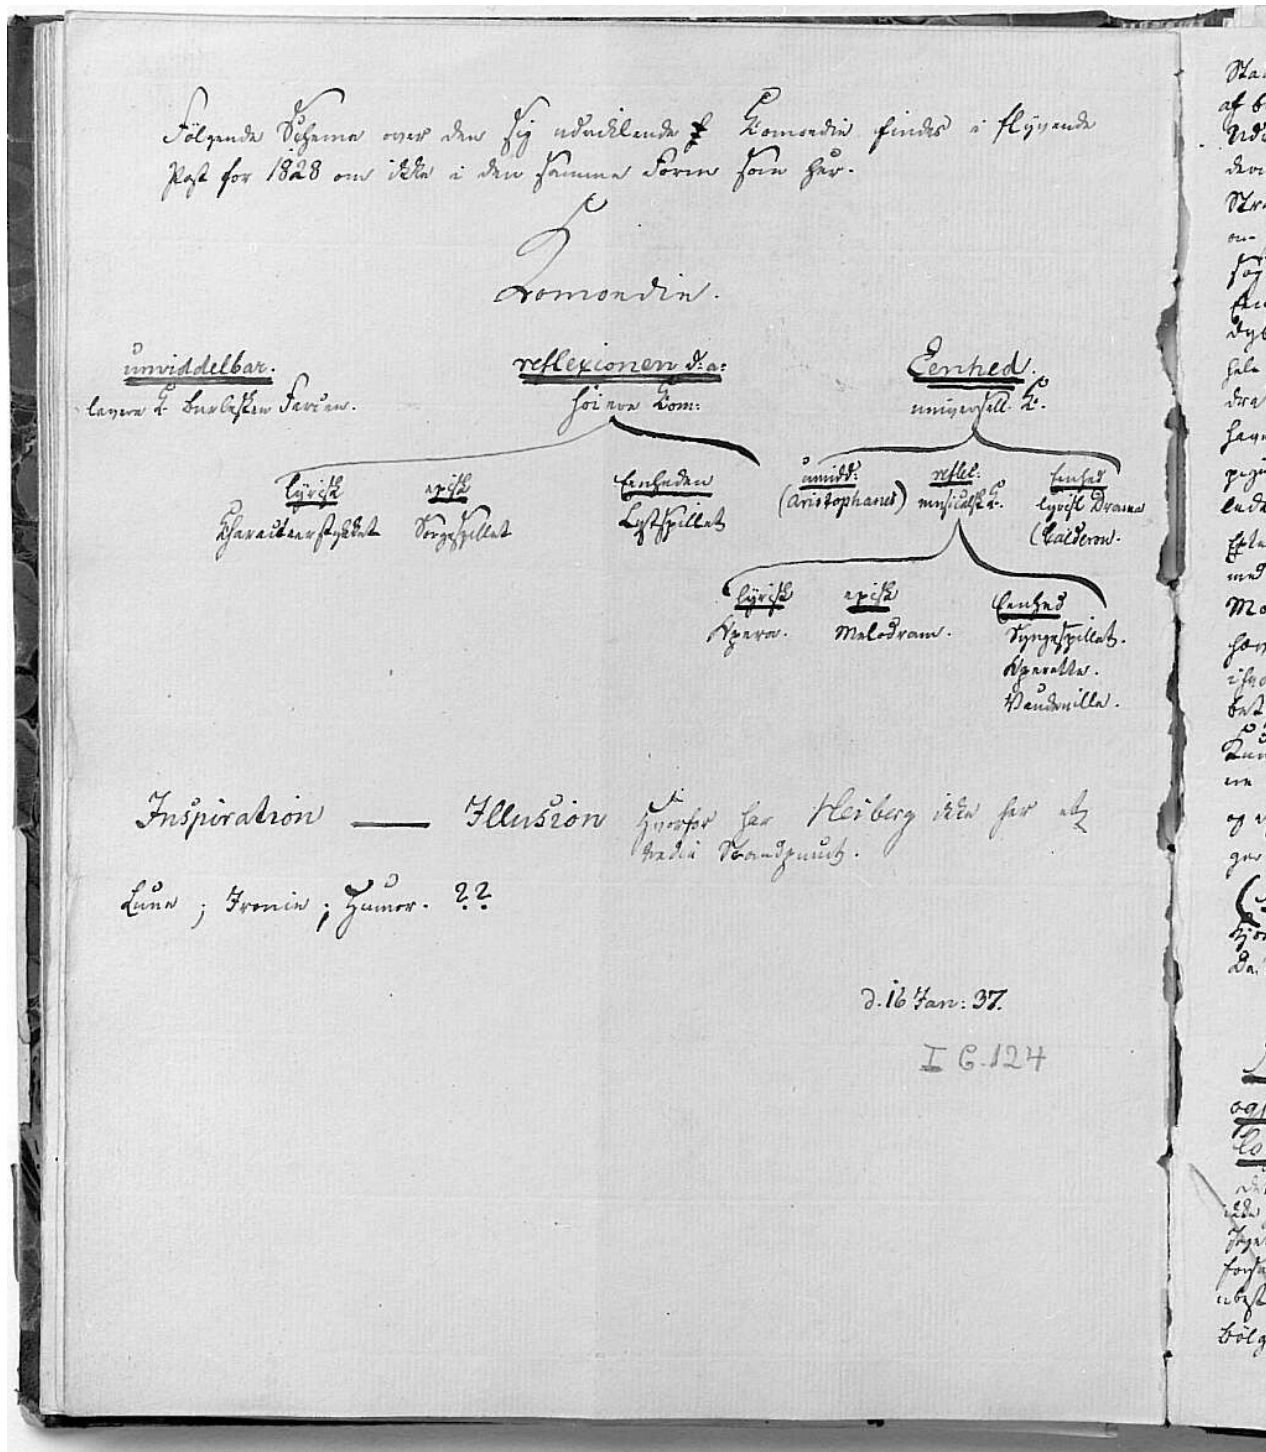 Følgende Schema over den sig udviklende Komoedie findes i flyvende
Post for 1828 om ikke i den samme Form som her.
Komoedie.
umiddelbar.
lavere K. Burlesken Farcen.
reflexionen d: a:
høiere Kom:
Eenhed.
universell. K.
lyrisk
Characteerstykket
episk
Sørgespillet
Eenheden
Lystspillet
umidd:
(Aristophanes)
reflec:
musicalsk K.
Eenhed
lyrisk Drama
(Calderon.
lyrisk
Opera.
episk
Melodram.
Eenhed
Syngespillet.
Operette.
Vaudeville.
Inspiration — Illusion Hvorfor har Heiberg ikke her et
tredie Standpunct.
Lune ; Ironie ; Humor. ??
d. 16 Jan: 37.
I C.124